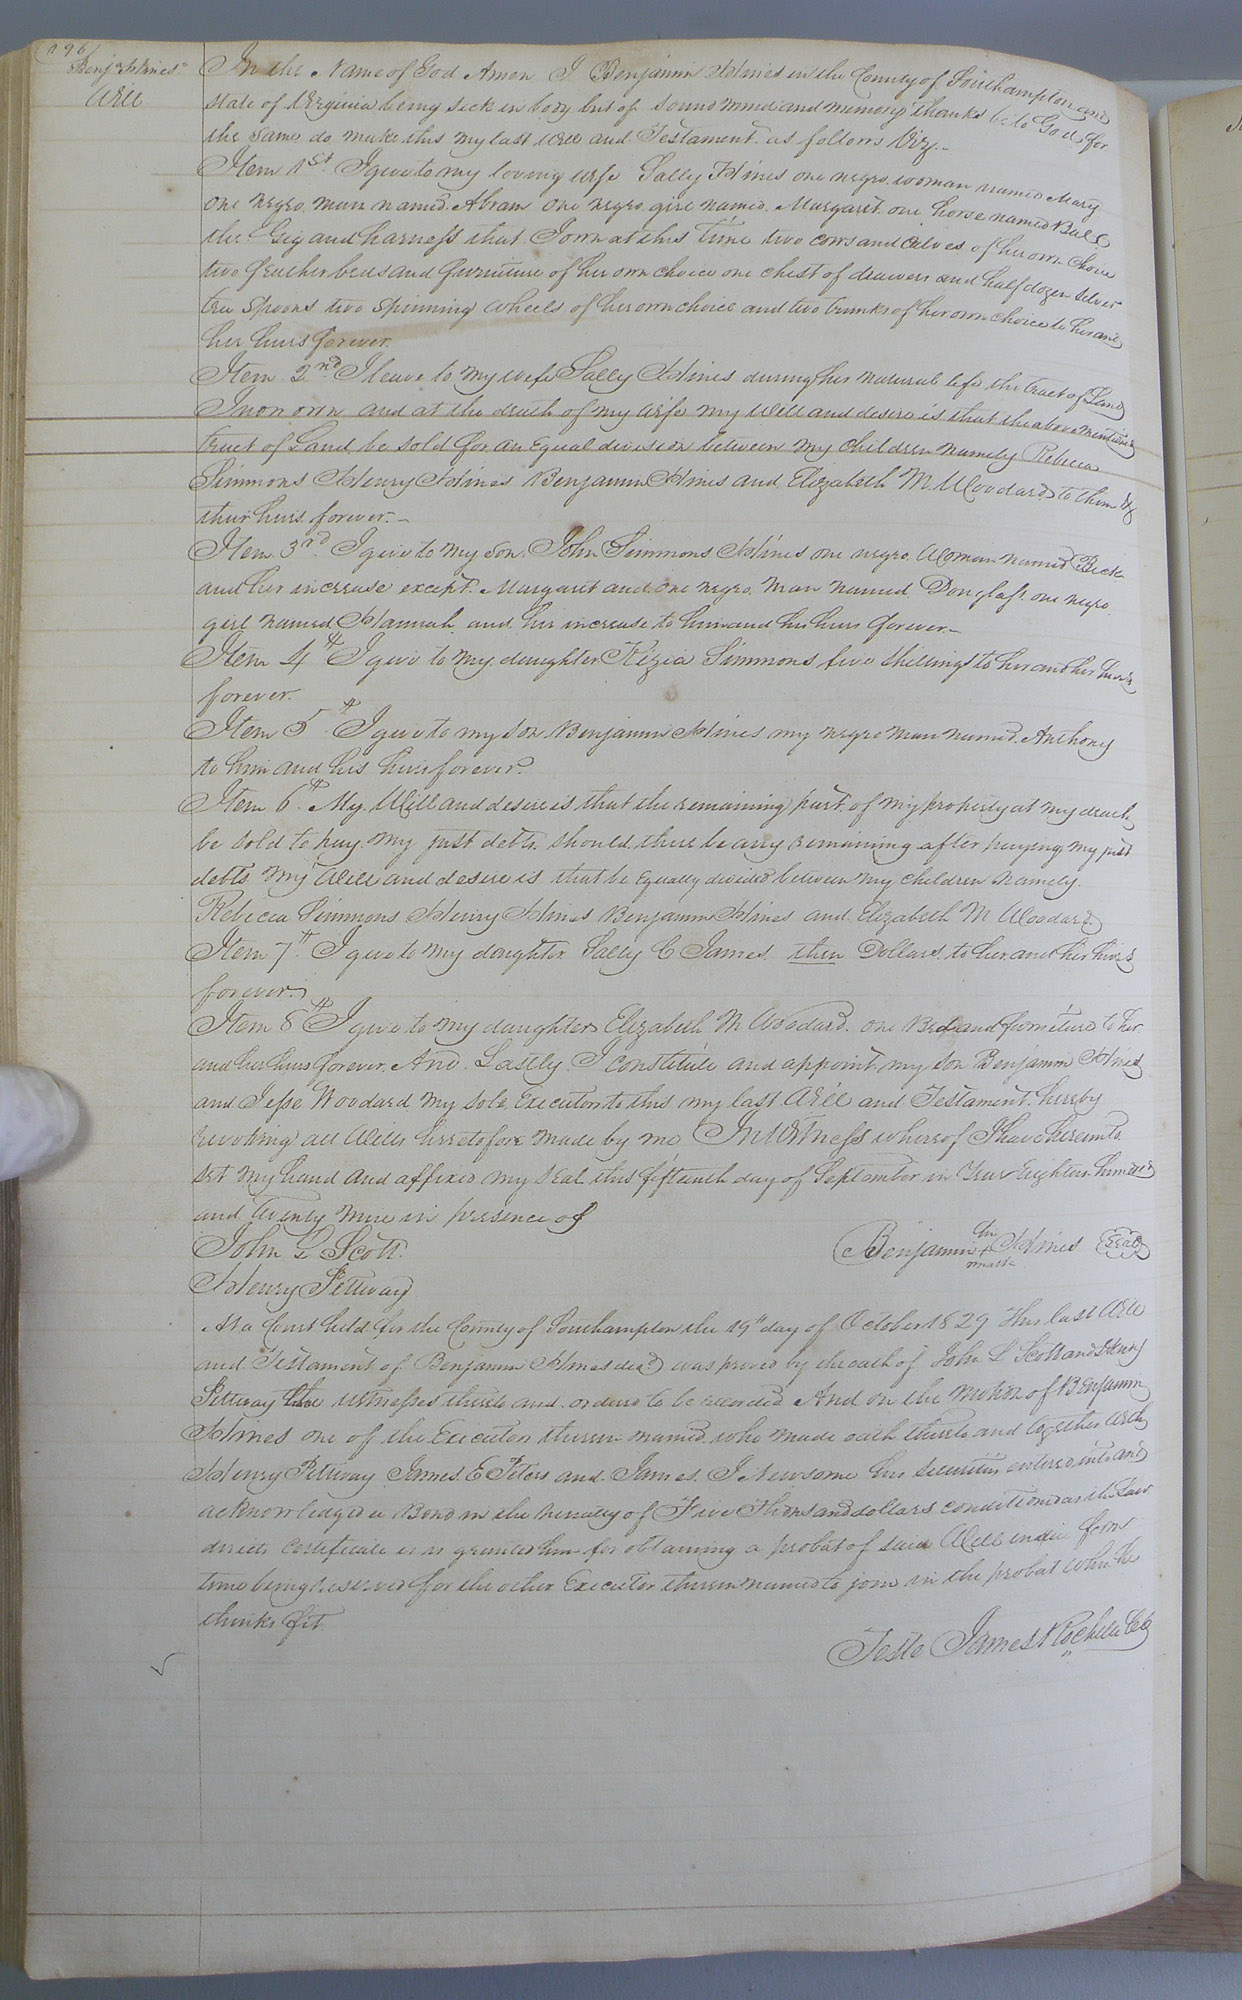 196
Benj.a Hines
Will
In the Name of God Amen I Benjamin Hines in the County of Southampton and
state of Virginia being sick in body but of sound mind and memory thanks be to God for
the same do make this my last Will and Testament as follows Viz.
Item 1st I give to my loving wife Sally Hines one negro woman named Mary
one negro man named Abram one negro girl named Margaret one horse named Ball
the Gig and harness that I own at this time two cows and calves of her own choice
two feather beds and furniture of her own choice one chest of drawers and half dozen silver
tea spoons two spinning wheels of her own choice and two trunks of her own choice to her and
her heirs forever.
Item 2nd I leave to my wife Sally Hines during her natural life the tract of Land
I now own and at the death of my wife my Will and desire is that the above mentioned
tract of Land be sold for an Equal division between my children namely Rebecca
Simmons Henry Hines Benjamin Hines and Elizabeth M. Woodard to them &
their heirs forever.
Item 3rd I give to my son John Simmons Hines one negro Woman named Beck
and her increase except Margaret and one negro man named Douglass one negro
girl named Hannah and her increase to him and his heirs forever
Item 4th I give to my daughter Kizia Simmons five shillings to her and her heirs
forever.
Item 5th I give to my son Benjamin Hines my negro man named Anthony
to him and his heirs forever.
Item 6th My Will and desire is that the remaining part of my property at my death
be sold to pay my just debts should there be any remaining after paying my just
debts my Will and desire is that be Equally divided between my children namely
Rebecca Simmons Henry Hines Benjamin Hines and Elizabeth M Woodard
Item 7th I give to my daughter Sally C James then Dollars to her and her heirs
forever.
Item 8th I give to my daughter Elizabeth M Woodard one Bed and furniture to her
and her heirs forever. And Lastly I constitute and appoint my son Benjamin Hines
and Jesse Woodard my sole Executors to this my last Will and Testament hereby
revoking all Wills heretofore made by me In Witness whereof I have hereunto
set my hand and affixed my seal this fifteenth day of September in Year Eighteen hundred
and twenty nine in presence of
John L Scott
Benjamin his + mark Hines Seal
Henry Pettway
At a Court held for the County of Southampton the 19th day of October 1829 This last Will
and Testament of Benjamin Hines decd was proved by the oath of John L Scott and Henry
Pettway the witnesses thereto and ordered to be recorded And on the motion of Benjamin
Hines one of the Executors therein named who made oath thereto and together with
Henry Pettway James E Peters and James J Newsome his securities entered into and
acknowledged a Bond in the penalty of Five Thousand dollars conditioned as the Law
directs Certificate is granted him for obtaining a probat of said Will in due form
time being reserved for the other Executor therein named to join in the probat when he
thinks fit.
Teste James Rochelle CC